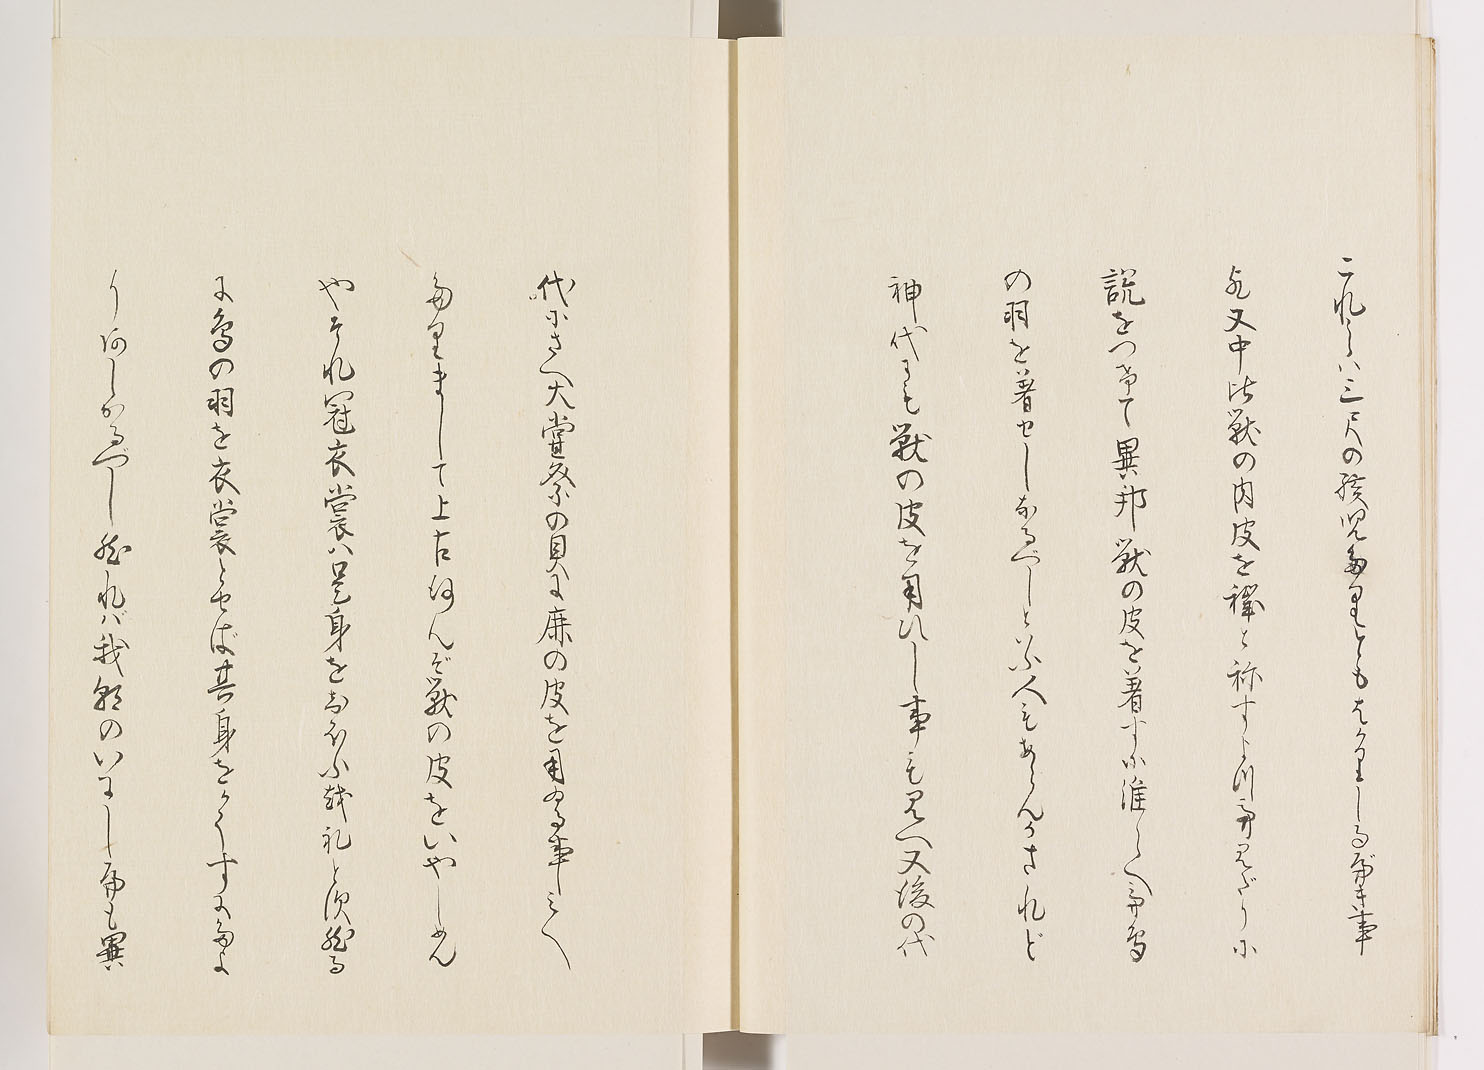 これらハ三尺の孩児多里とももはかりしるべき事
也又中比獣の肉皮を穢と称すより万みだりに
説をつけて異邦獣の皮を着すに准らへて鳥
の羽を着せしなるべしといふ人もあらんかされど
神代にも獣の皮を用ひし事も見へ又後の代
代にさへ大嘗祭の具に鹿の皮を用る事しらへ
多里まして上古何んぞ獣の皮をいやしめん
やそれ冠衣裳ハ是身をおほふ越礼と須然る
に鳥の羽を衣裳とせば其身をかくすにたよ
りあしかるべし然れバ我朝のいにしへも異